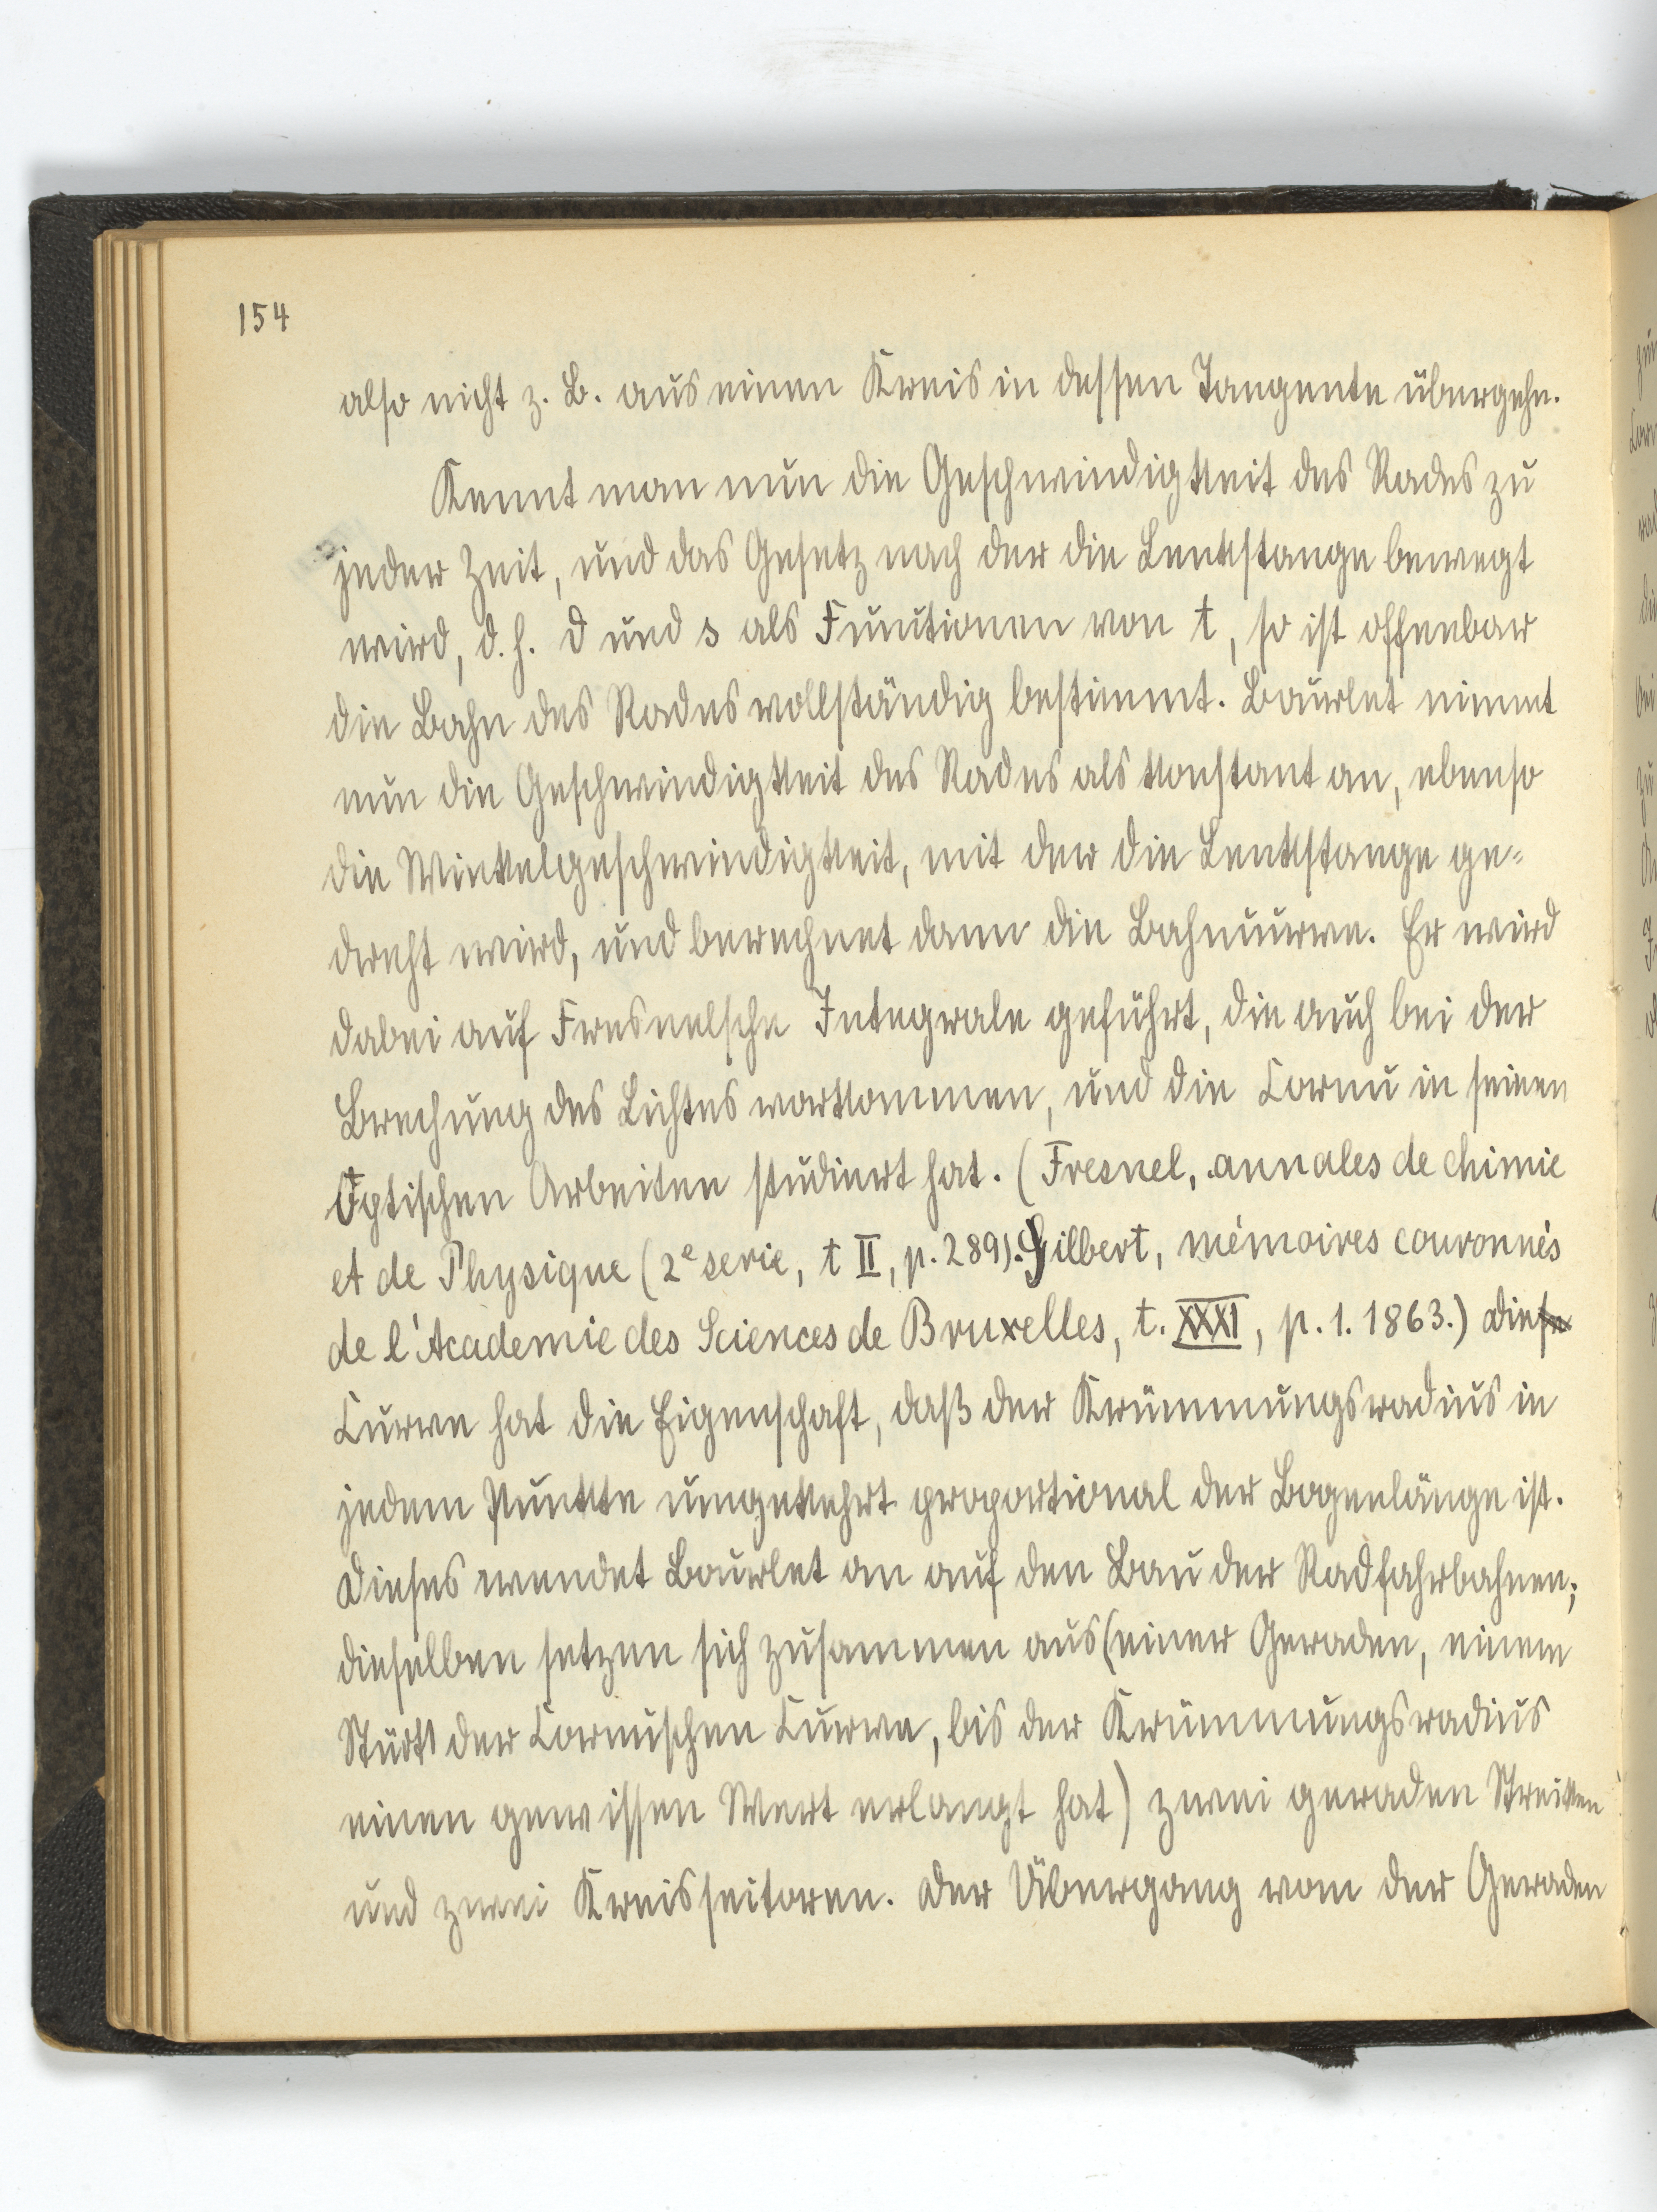 154
also nicht z. B. aus einen Kreis in dessen Tangente übergehe.
Kennt man nun die Geschwindigkeit des Rades zu
jeder Zeit, und das Gesetz nach der die Lenkstange bewegt
wird, d. h. d und s als Funktionen von t, so ist offenbar
die Bahn des Rades vollständig bestimmt. Bourlet nimmt
nun die Geschwindigkeit des Rades als konstant an, ebenso
die Winkelgeschwindigkeit, mit der die Lenkstange ge-
dreht wird, und berechnet dann die Bahncurve. Er wird
dabei auf Fresnelsche Integrale geführt, die auch bei der
Brechung des Lichtes vorkommen, und die Cornu in seinen
Optischen Arbeiten studiert hat. (Fresnel, annales de chimie
et de Physique (2e serie, t II, p. 289). Gilbert, mémoires couronnés
de l'Academie des Sciences de Bruxelles, t. XXXI, p. 1. 1863.) Die
Curve hat die Eigenschaft, daß der Krümmungsradius in
jedem Punkte umgekehrt proportional der Bogenlänge ist.
Dieses wendet Bourlet an auf den Bau der Radfahrbahnen;
dieselben setzen sich zusammen aus (einer Geraden, einem
Stück der Cornuschen Curve, bis der Krümmungsradius
einen gewissen Wert erlangt hat) zwei geraden Strecken
und zwei Kreissectoren. Der Übergang von der Geraden